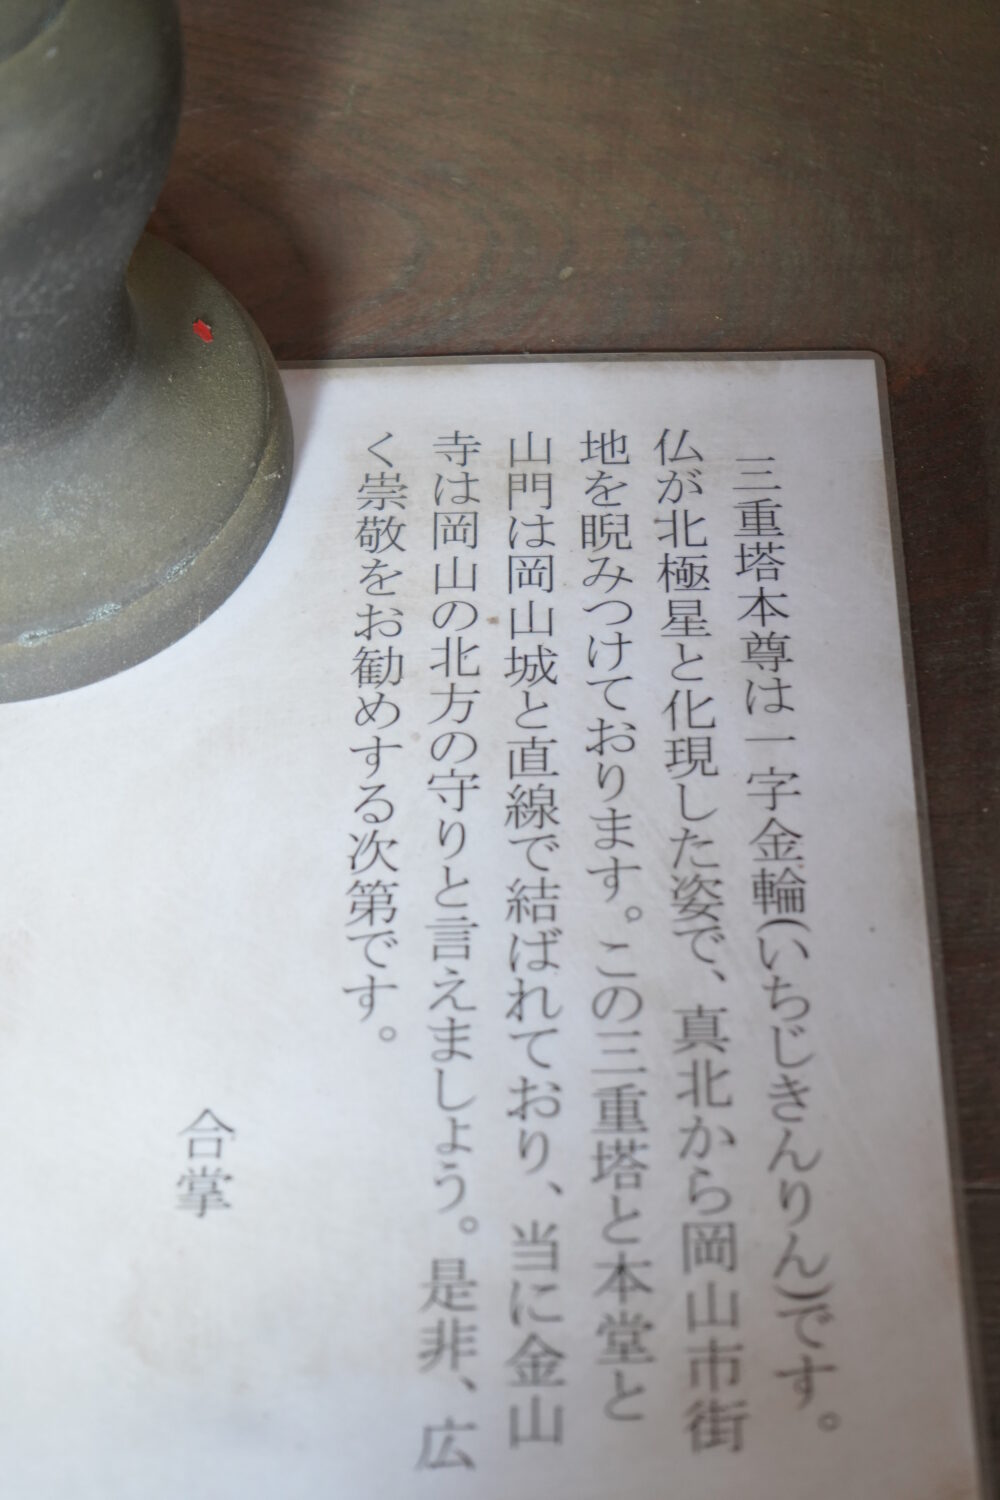 三重塔本尊は一字金輪(いちじきんりん)です。
仏が北極星と化現した姿で、真北から岡山市街
地を睨みつけております。この三重塔と本堂と
山門は岡山城と直線で結ばれており、当に金山
寺は岡山の北方の守りと言えましょう。是非、広
く崇敬をお勧めする次第です。
合掌